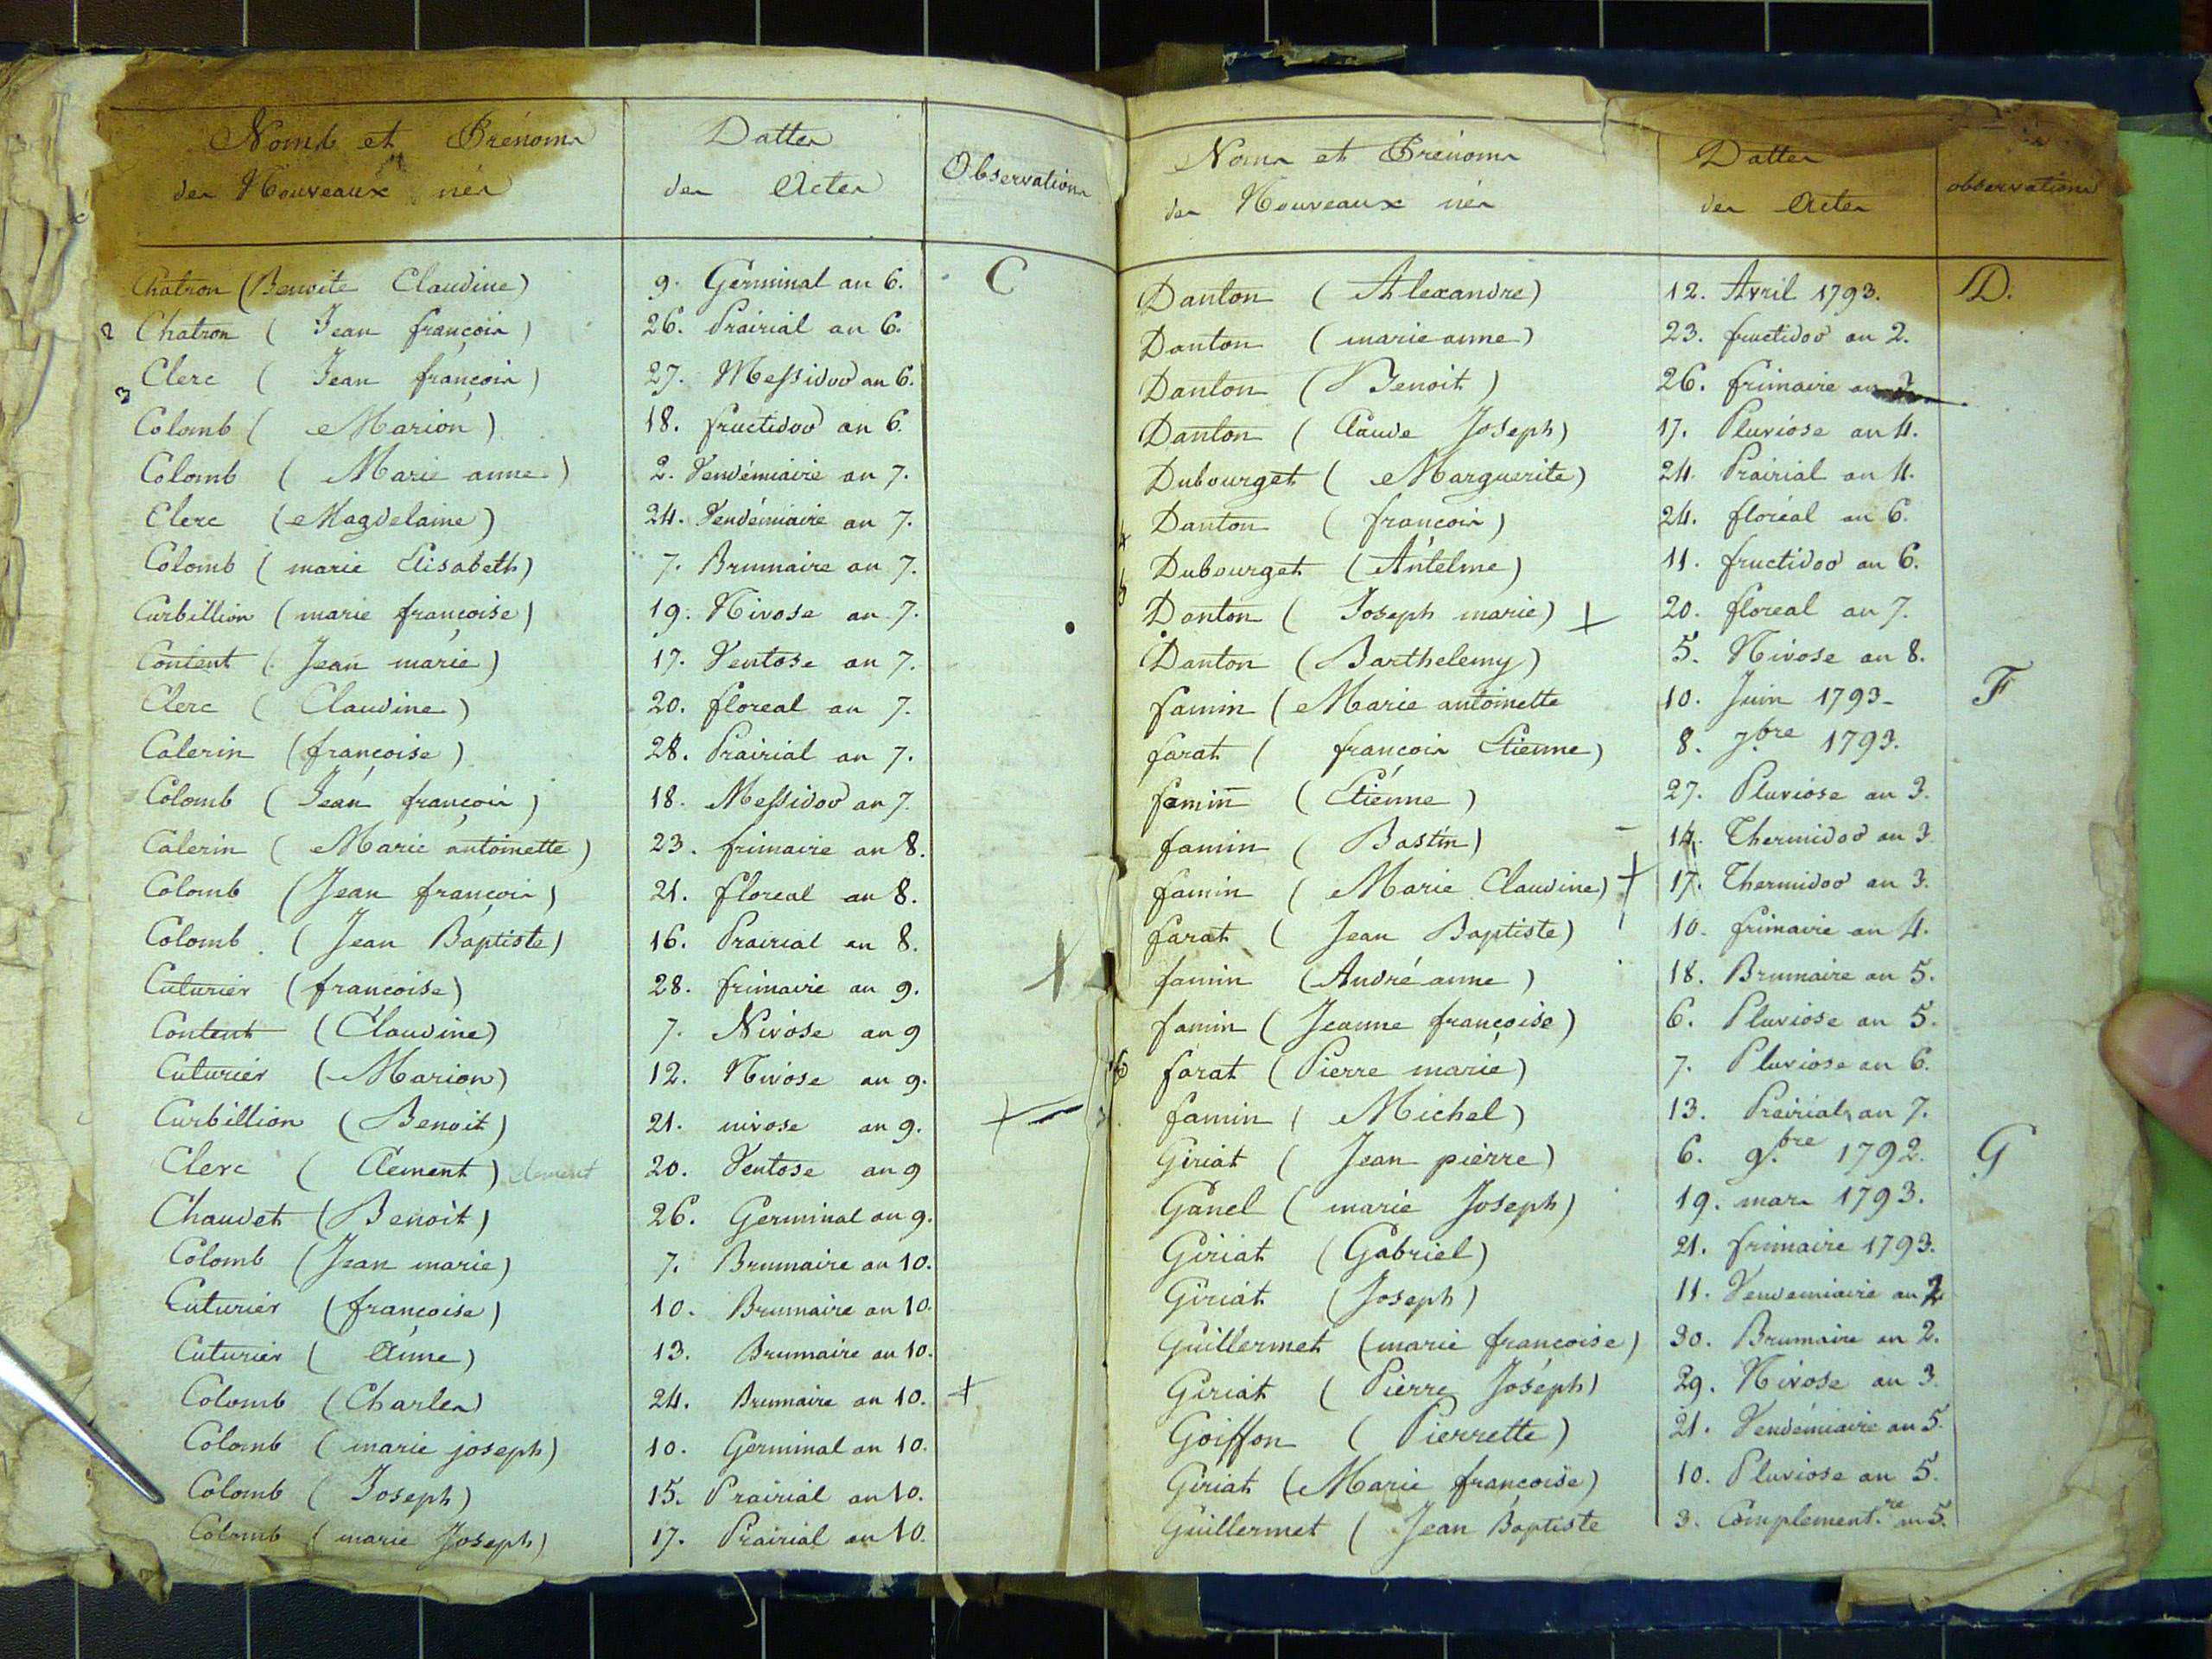 Noms et Prénoms
des Nouveaux nés
Dattes
des Actes
Observations
Chatron (Benoite Claudine) 9. Germinal an 6. C
2 Chatron ( Jean françois ) 26. Prairial an 6.
3 Clerc ( Jean françois ) 27. Messidor an 6.
Colomb ( Marion ) 18. fructidor an 6.
Colomb ( Marie anne ) 2. Vendémiaire an 7.
Clerc (Magdelaine) 24. Vendémiaire an 7.
Colomb ( marie Elisabeth) 7. Brumaire an 7.
Curbillion ( marie françoise) 19. Nivose an 7.
Content ( Jean marie ) 17. Ventose an 7.
Clerc ( Claudine ) 20. floreal an 7.
Calerin (françoise ) 28. Prairial an 7.
Colomb ( Jean françois ) 18. Messidor an 7.
Calerin ( Marie antoinette ) 23. frimaire an 8.
Colomb (Jean françois ) 21. floreal an 8.
Colomb ( Jean Baptiste) 16. Prairial an 8.
Cuturier (françoise) 28. frimaire an 9.
Content (Claudine) 7. Nivôse an 9
Cuturier (Marion) 12. Nivose an 9.
Curbillion (Benoit) 21. nivose an 9. +
Clerc ( Clement ) clement 20. Ventose an 9
Chaudet (Benoit) 26. Germinal an 9.
Colomb (Jean marie) 7. Brumaire an 10.
Cuturier (françoise) 10. Brumaire an 10.
Cuturier ( Anne) 13. Brumaire an 10.
Colomb (Charles) 24. Brumaire an 10. +
Colomb ( marie joseph) 10. Germinal an 10.
Colomb ( Joseph) 15. Prairial an 10.
Colomb ( marie Joseph) 17. Prairial an 10.
Noms et Prénoms
des Nouveaux nés
Dattes
des Actes
observations
Danton ( Alexandre) 12. Avril 1793. D.
Danton ( marie anne) 23. fructidor an 2.
Danton (Benoit ) 26. frimaire an
Danton ( Claude Joseph) 17. Pluviôse an 4.
Dubourget ( Marguerite) 24. Prairial an 4.
4 Danton ( françois) 24. floréal an 6.
5 Dubourget (Antelme) 11. fructidor an 6.
Danton ( Joseph marie) + 20. floreal an 7.
Danton (Barthelemy) 5. Nivose an 8.
famin ( Marie antoinette 10. Juin 1793- F
farat ( françois Etienne) 8. 7.bre 1793.
famin ( Etienne ) 27. Pluviose an 3.
famin ( Bastin) 14. Thermidor an 3.
famin ( Marie Claudine) + 17. Thermidor an 3.
farat ( Jean Baptiste) 10. frimaire an 4.
famin (André anne ) 18. Brumaire an 5.
famin ( Jeanne françoise) 6. Pluviose an 5.
6 farat (Pierre marie) 7. Pluviose an 6.
famin ( Michel) 13. Prairial an 7.
Giriat ( Jean pierre) 6. 9.bre 1792. G
Ganel ( marie Joseph) 19. mars 1793.
Giriat (Gabriel) 21. frimaire 1793.
Giriat (Joseph) 11. Vendemiaire an 2
Guillermet (marie françoise) 30. Brumaire an 2.
Giriat ( Pierre Joseph) 29. Nivose an 3.
Goiffon ( Pierrette) 21. Vendémiaire an 5.
Giriat (Marie françoise) 10. Pluviose an 5.
Guillermet ( Jean Baptiste 3. Complement.re an 5.